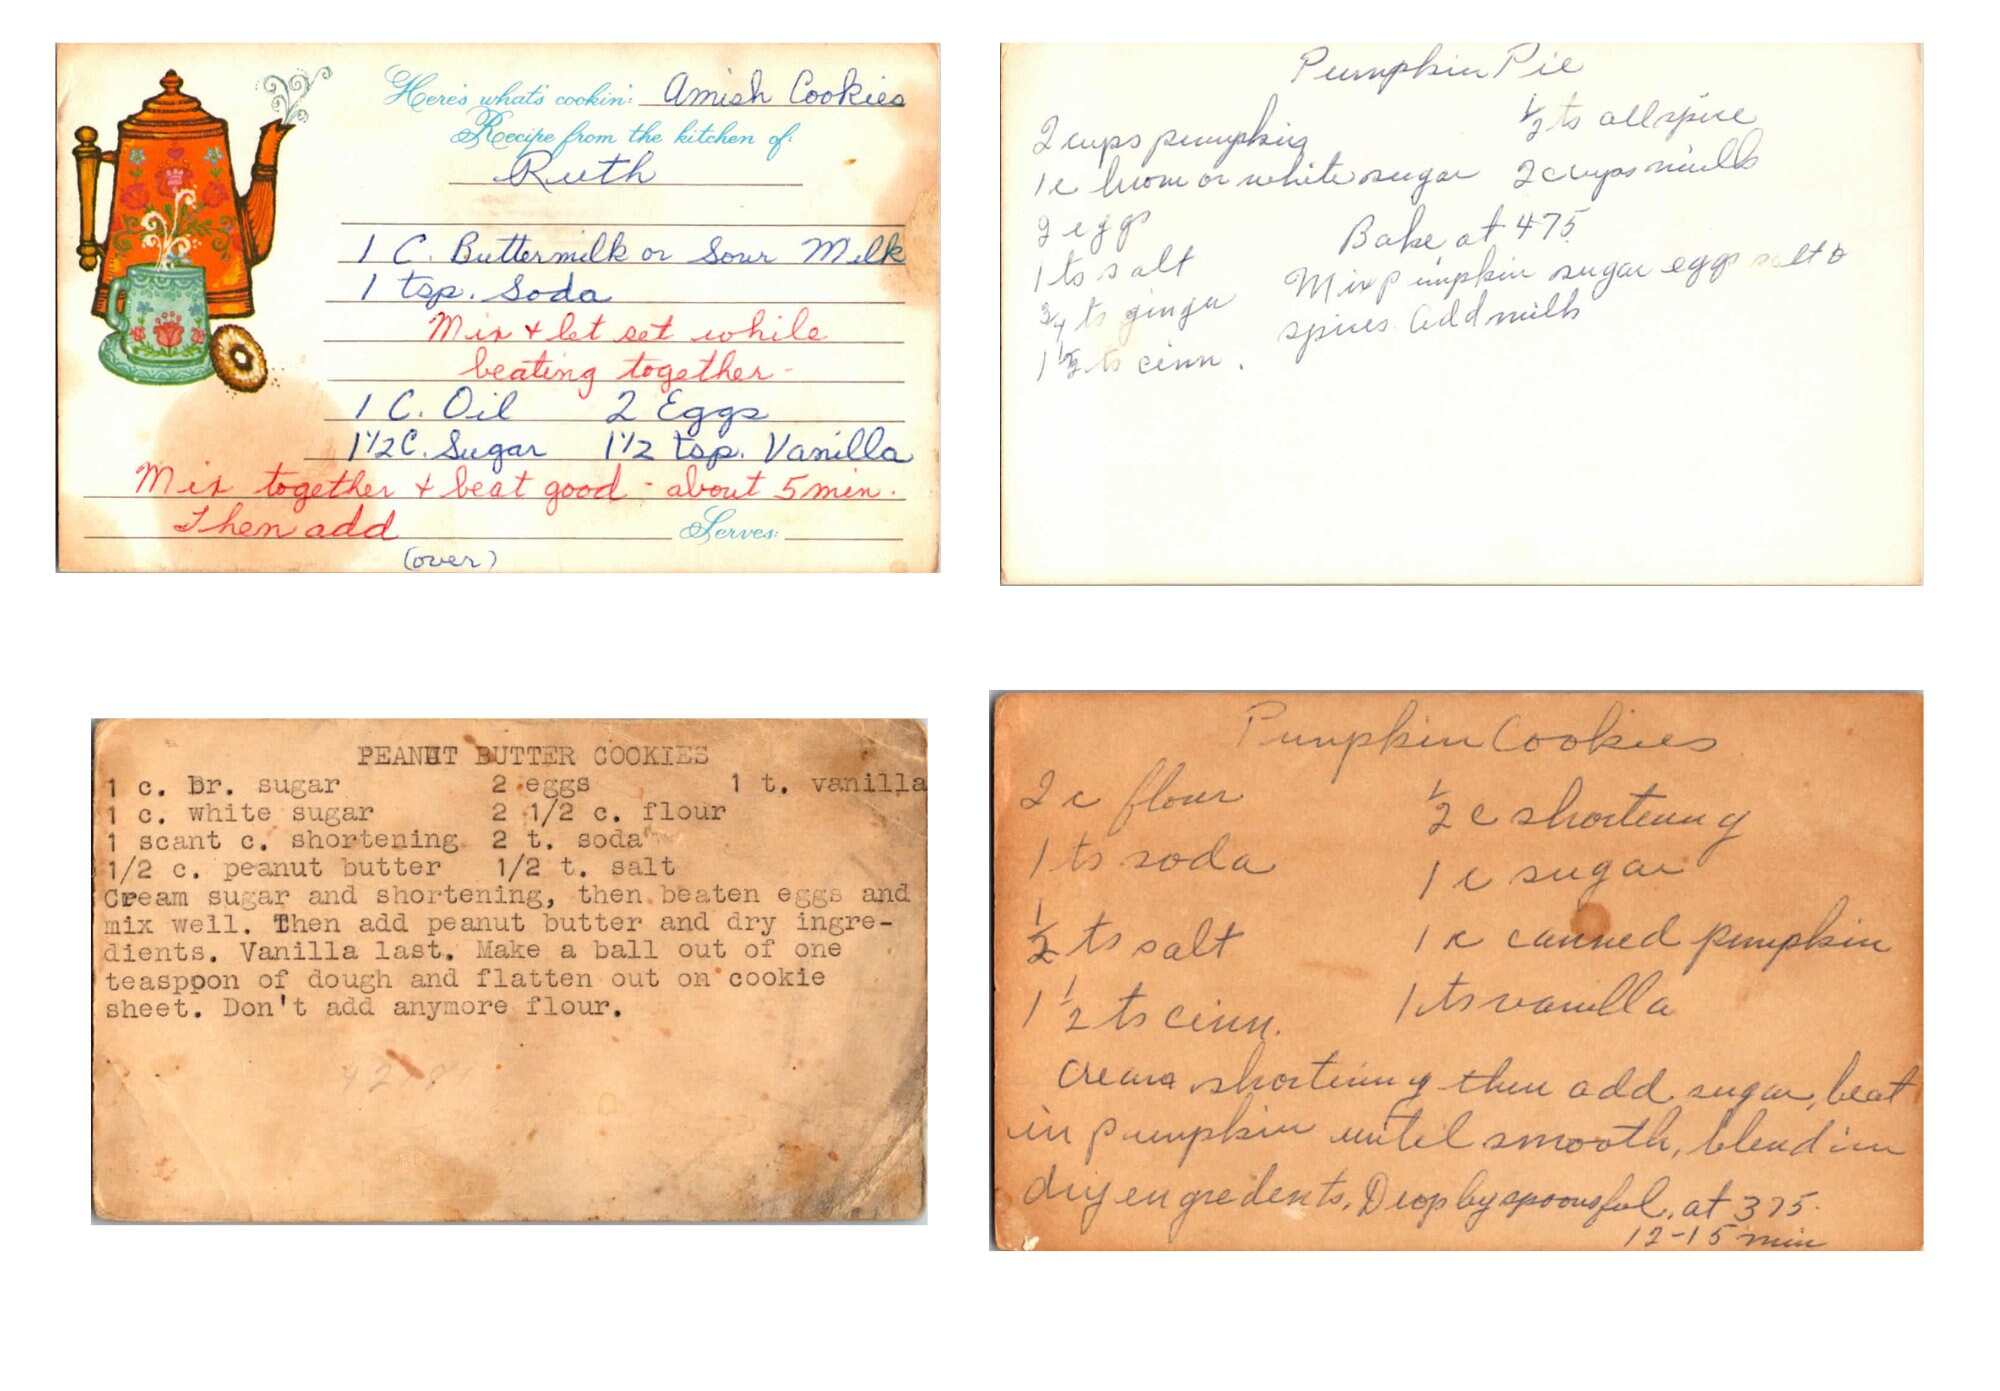 Here's what's cookin': Amish Cookies
Recipe from the kitchen of:
Ruth
1 C. Buttermilk or Sour Milk
1 tsp. Soda
Mix + let set while
beating together -
1 C. Oil 2 Eggs
1 1/2 C. Sugar 1 1/2 tsp. Vanilla
Mix together + beat good - about 5 min.
Then add
Serves:
(over)
Pumpkin Pie
2 cups pumpkin
1 c brown or white sugar
2 eggs
1 ts salt
3/4 ts ginger
1 1/2 ts cinn.
1/2 ts allspice
2 cups milk
Bake at 475
Mix pumpkin sugar eggs salt &
spices. Add milk
PEANUT BUTTER COOKIES
1 c. Br. sugar 2 eggs 1 t. vanilla
1 c. white sugar 2 1/2 c. flour
1 scant c. shortening 2 t. soda
1/2 c. peanut butter 1/2 t. salt
Cream sugar and shortening, then beaten eggs and
mix well. Then add peanut butter and dry ingre-
dients. Vanilla last. Make a ball out of one
teaspoon of dough and flatten out on cookie
sheet. Don't add anymore flour.
Pumpkin Cookies
2 c flour
1 ts soda
1/2 ts salt
1 1/2 ts cinn.
1/2 c shortening
1 c sugar
1 c canned pumpkin
1 ts vanilla
Cream shortening then add sugar, beat
in pumpkin until smooth, blend in
dry engredents. Drop by spoonsful, at 375.
12-15 min